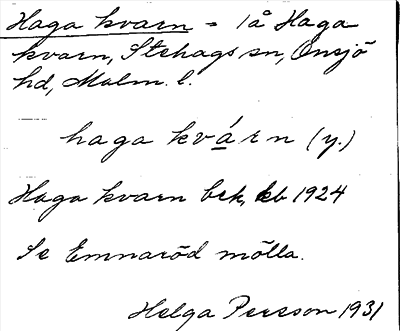 Haga kvarn = 1å Haga
kvarn, Stehags sn, Onsjö
hd, Malm. l.
haga kvárn (y.)
Haga kvarn bek, kb 1924
Se Emnaröd mölla.
Helga Persson 1931